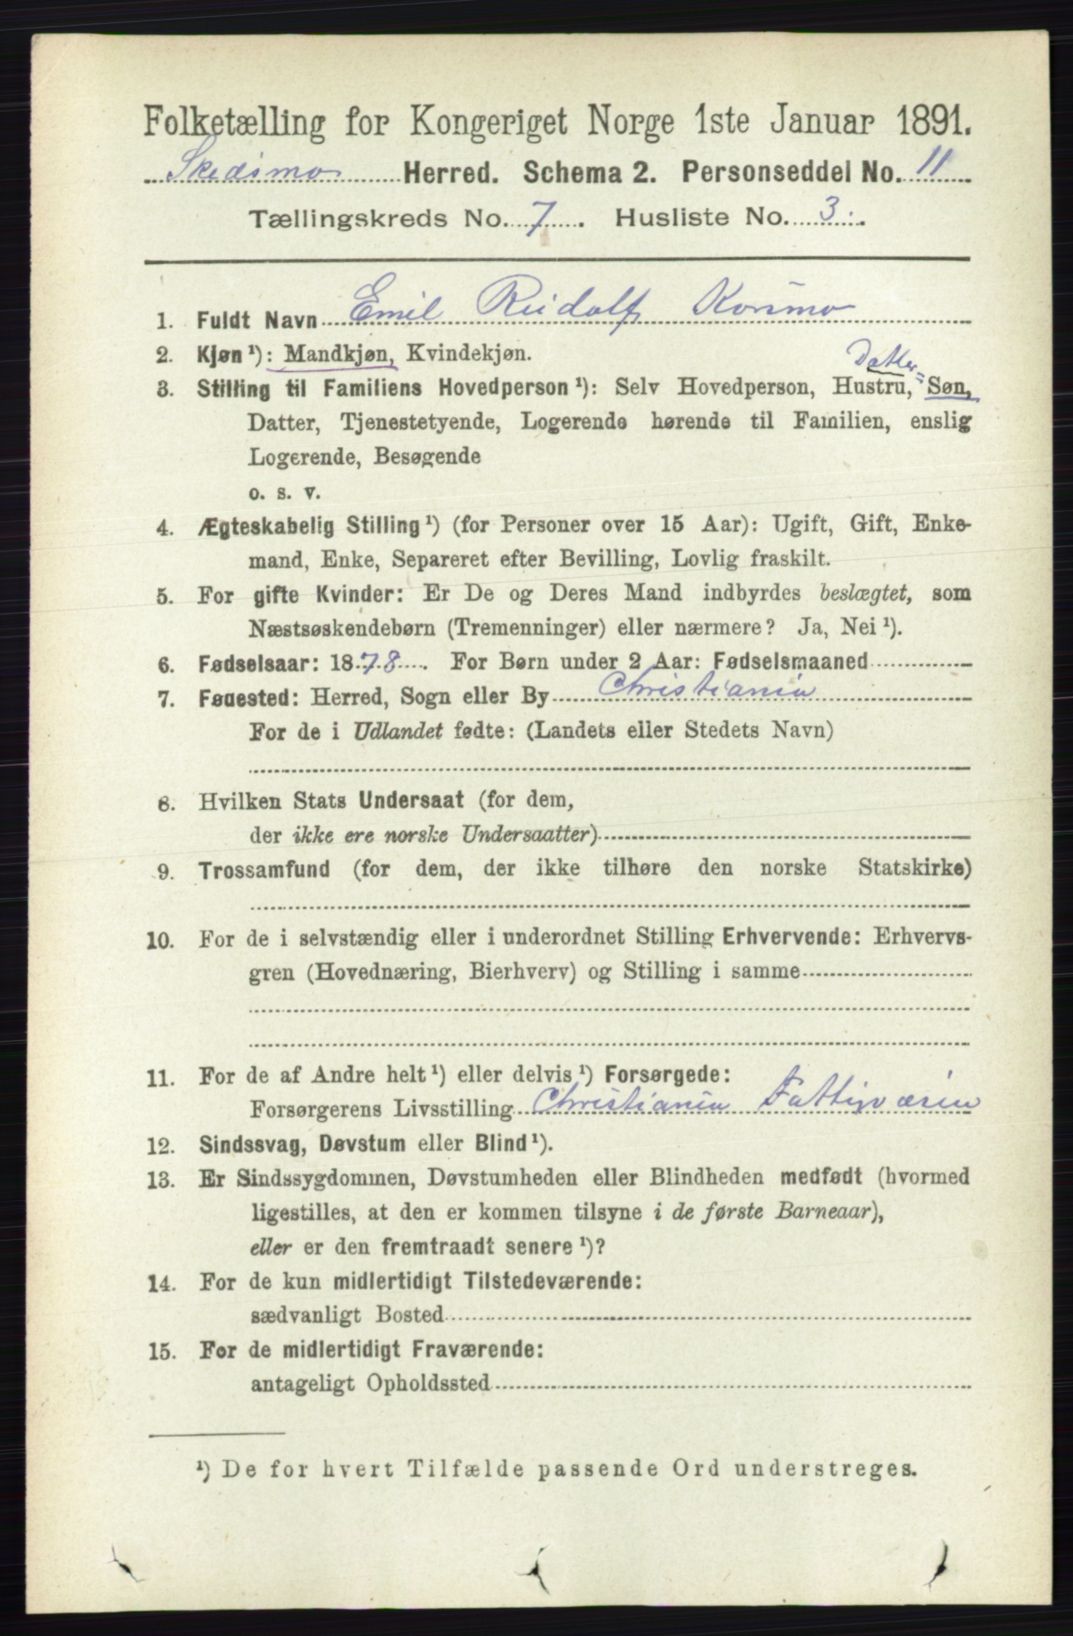 Folketælling for Kongeriget Norge 1ste Januar 1891.
Skedsmo Herred. Schema 2. Personseddel No. 11
Tællingskreds No. 7. Husliste No. 3.
1. Fuldt Navn Emil Rudolf Korsmo
2. Kjøn ¹): Mandkjøn, Kvindekjøn.
Datter=
3. Stilling til Familiens Hovedperson ¹): Selv Hovedperson, Hustru, Søn,
Datter, Tjenestetyende, Logerende hørende til Familien, enslig
Logerende, Besøgende
o. s. v.
4. Ægteskabelig Stilling ¹) (for Personer over 15 Aar): Ugift, Gift, Enke-
mand, Enke, Separeret efter Bevilling, Lovlig fraskilt.
5. For gifte Kvinder: Er De og Deres Mand indbyrdes beslægtet, som
Næstsøskendebørn (Tremenninger) eller nærmere? Ja, Nei ¹).
6. Fødselsaar: 1878. For Børn under 2 Aar: Fødselsmaaned
7. Fødested: Herred, Sogn eller By Christiania
For de i Udlandet fødte: (Landets eller Stedets Navn)
8. Hvilken Stats Undersaat (for dem,
der ikke ere norske Undersaatter)
9. Trossamfund (for dem, der ikke tilhøre den norske Statskirke)
10. For de i selvstændig eller i underordnet Stilling Erhvervende: Erhvervs-
gren (Hovednæring, Bierhverv) og Stilling i samme
11. For de af Andre helt ¹) eller delvis ¹) Forsørgede:
Forsørgerens Livsstilling Christiania Fattigvæsen
12. Sindssvag, Døvstum eller Blind ¹).
13. Er Sindssygdommen, Døvstumheden eller Blindheden medfødt (hvormed
ligestilles, at den er kommen tilsyne i de første Barneaar),
eller er den fremtraadt senere ¹)?
14. For de kun midlertidigt Tilstedeværende:
sædvanligt Bosted
15. For de midlertidigt Fraværende:
antageligt Opholdssted
¹) De for hvert Tilfælde passende Ord understreges.